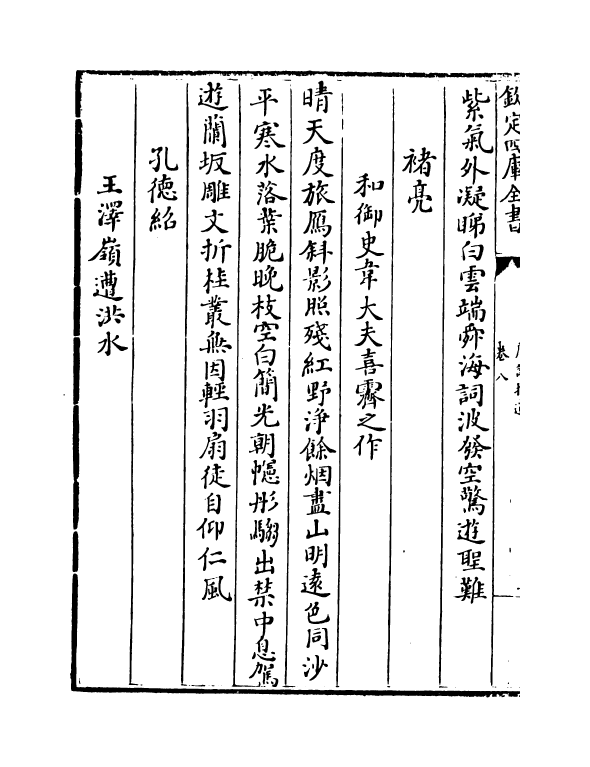 欽定四庫全書
卷八
紫氣外凝睇白雲端舜海詞波發空驚遊聖難
褚亮
和御史韋大夫喜霽之作
晴天度旅鴈斜影照殘紅野淨餘烟盡山明遠色同沙
平寒水落葉脆晚枝空白簡光朝幰彤騶出禁中息駕
遊蘭坂雕文折桂叢無因輕羽扇徒自仰仁風
孔德紹
王澤嶺遭洪水